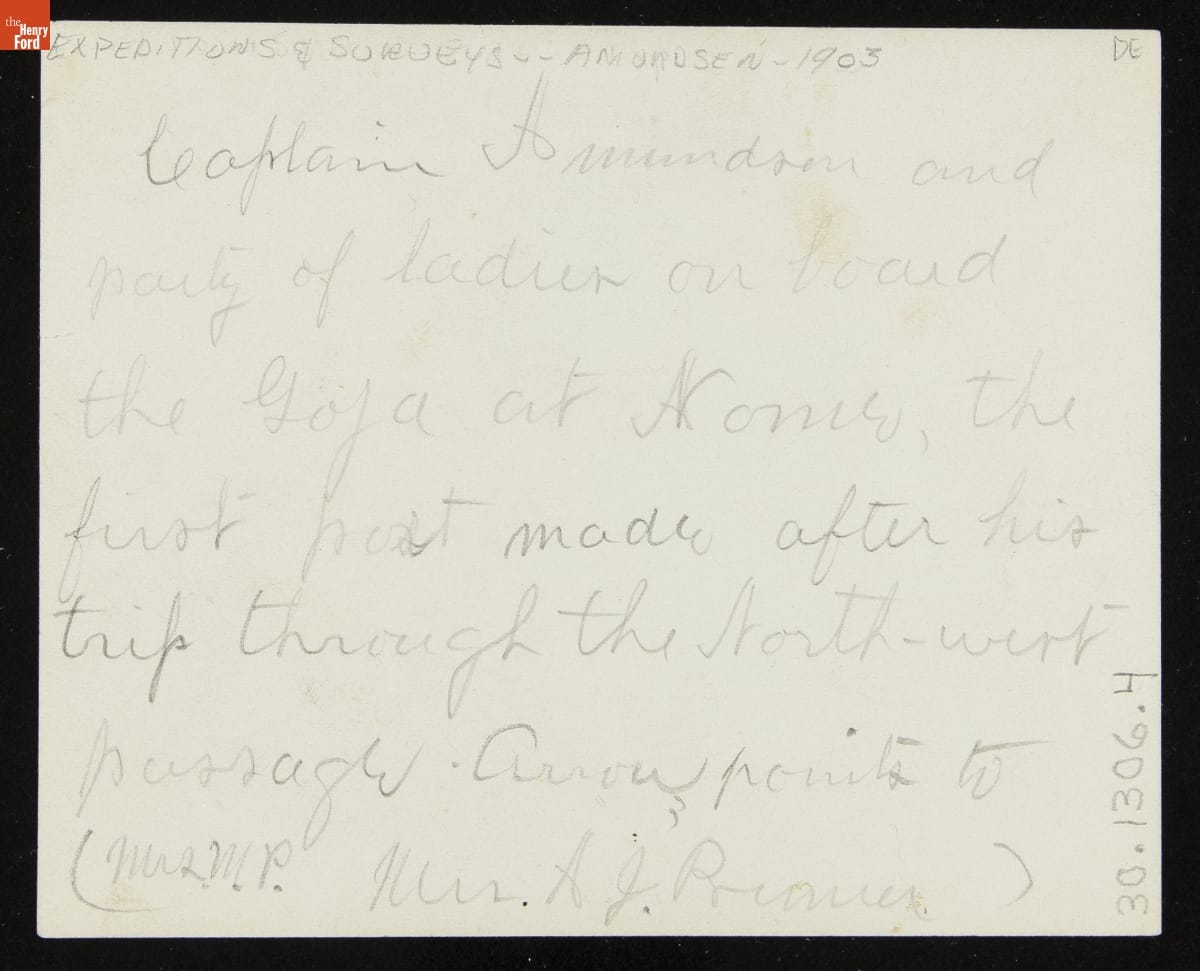 the Henry Ford
EXPEDITIONS & SURVEYS -- AMUNDSEN - 1903
DE
Captain Amundsen and
party of ladies on board
the Göja at Nome, the
first post made after his
trip through the North-west
passage. Arrow points to
(Mrs. M.P. Mrs. A J.)
30.1306.4